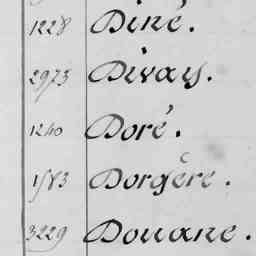 1228 Diné.
2973 Divay.
1240 Doré.
1583 Dorgère.
3229 Douane.